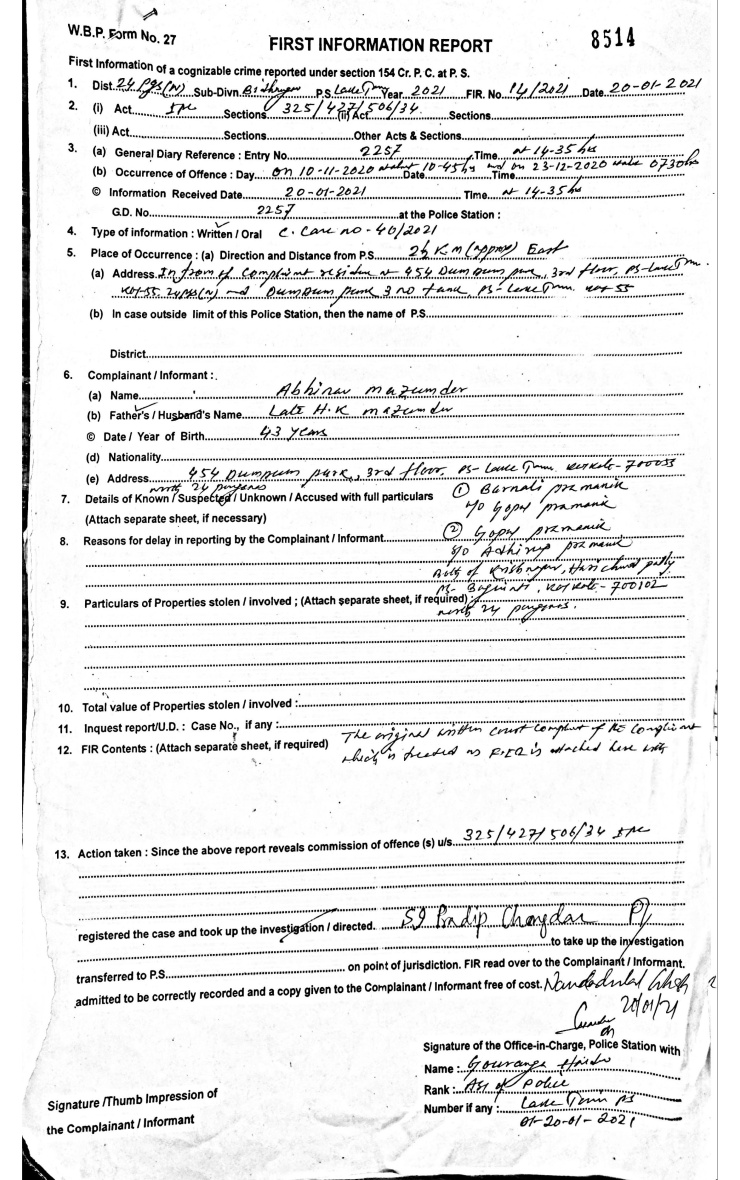 W.B.P. Form No. 27
8514
FIRST INFORMATION REPORT
First Information of a cognizable crime reported under section 154 Cr. P. C. at P. S.
1. Dist. 24 Pgs(N) Sub-Divn. P.S. Lake Town Year 2021 FIR. No. 14/2021 Date 20-01-2021
2. (i) Act IPC Sections 325/427/506/34 (ii) Act Sections
(iii) Act Sections Other Acts & Sections
3. (a) General Diary Reference : Entry No. 2257 Time at 14-35 hrs
(b) Occurrence of Offence : Day on 10-11-2020 at 10-45 hrs and on 23-12-2020 0730 hrs Date Time
© Information Received Date 20-01-2021 Time at 14-35 hrs
G.D. No. 2257 at the Police Station :
4. Type of information : Written / Oral C. Case no - 40/2021
5. Place of Occurrence : (a) Direction and Distance from P.S. 2½ Km (approx) East
(a) Address In front of complainant at 454 Dum Dum park, 3rd floor, PS- Lake Town.
Kol-55, 24 pgs(N) and Dumdum park 3 no tank, PS- Lake Town Kol-55
(b) In case outside limit of this Police Station, then the name of P.S.
District
6. Complainant / Informant :
(a) Name Abhinav mazumder
(b) Father's / Husband's Name Late H.K mazumder
© Date / Year of Birth 43 years
(d) Nationality
(e) Address 454 Dumdum park, 3rd floor, PS- Lake Town. Kolkata-700055
north 24 parganas
7. Details of Known / Suspected / Unknown / Accused with full particulars ① Barnali pramanik
(Attach separate sheet, if necessary) w/o Gopal pramanik
② Gopal pramanik
8. Reasons for delay in reporting by the Complainant / Informant
s/o Adhir pramanik
Both of Krishnapur, pally
PS- Baguiati, Kolkata-700102
9. Particulars of Properties stolen / involved ; (Attach separate sheet, if required) :
north 24 parganas.
10. Total value of Properties stolen / involved :
11. Inquest report/U.D. : Case No., if any :
12. FIR Contents : (Attach separate sheet, if required) The original written court complaint of the complainant
which is treated as F.I.R is attached here with
13. Action taken : Since the above report reveals commission of offence (s) u/s. 325/427/506/34 IPC
registered the case and took up the investigation / directed. SI Pradip Chongdar
to take up the investigation
transferred to P.S. on point of jurisdiction. FIR read over to the Complainant / Informant.
admitted to be correctly recorded and a copy given to the Complainant / Informant free of cost. Nandadulal Ghosh
20/01/21
Signature of the Office-in-Charge, Police Station with
Name : Gouranga
Rank : ASI of Police
Number if any : Lake Town PS
20-01-2021
Signature /Thumb Impression of
the Complainant / Informant